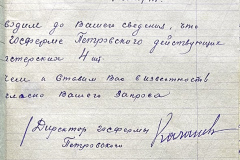 водите до Вашего сведения, что
Госферме Петровского действующих
4 шт.
чем и ставим Вас в известность
гласно Вашего Запроса
/ Директор Госфермы
Петровского